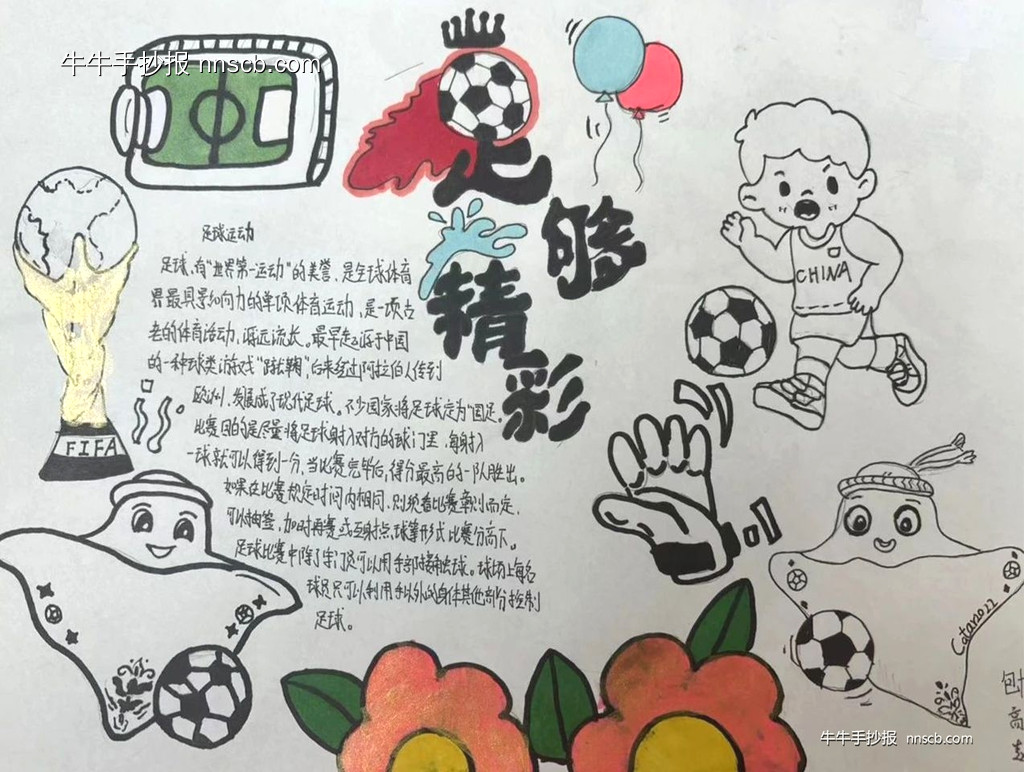 牛牛手抄报 nnscb.com
足够
精彩
足球运动
足球,有"世界第一运动"的美誉,是全球体育
界最具影响力的单项体育运动,是一项古
老的体育活动,源远流长。最早起源于中国
的一种球类游戏"蹴鞠",后来经过阿拉伯人传到
欧洲,发展成了现代足球。不少国家将足球定为"国足。
比赛目的是尽量将足球射入对方的球门里,每射入
一球就可以得到一分,当比赛完毕后,得分最高的一队胜出。
如果在比赛规定时间内相同,则须看比赛章则而定,
可以抽签,加时再赛或互射点球等形式比赛分高下。
足球比赛中除了守门员可以用手部接触足球。球场上每名
球员只可以利用手以外的身体其他部分控制
足球。
CHINA
FIFA
牛牛手抄报 nnscb.com